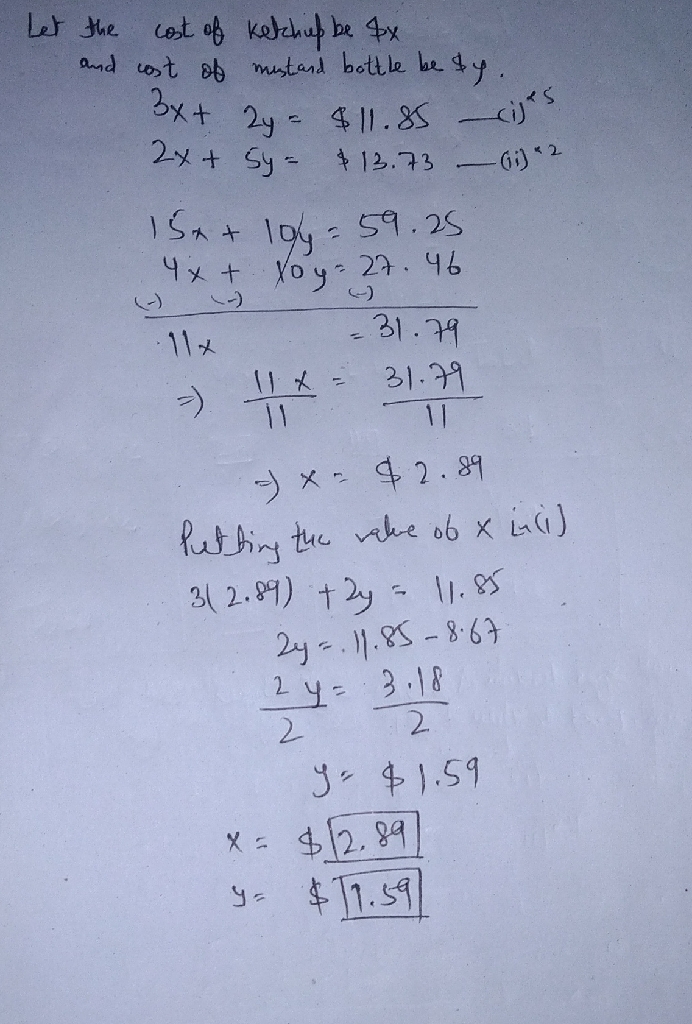 Let the cost of ketchup be $x
and cost of mustard bottle be $y.
3x + 2y = $11.85 —(i)×5
2x + 5y = $13.73 —(ii)×2
15x + 10y = 59.25
4x + 10y = 27.46
(-) (-) (-)
11x = 31.79
=) 11x/11 = 31.79/11
=) x = $2.89
Putting the value of x in (i)
3(2.89) + 2y = 11.85
2y = 11.85 - 8.67
2y/2 = 3.18/2
y = $1.59
x = $2.89
y = $1.59